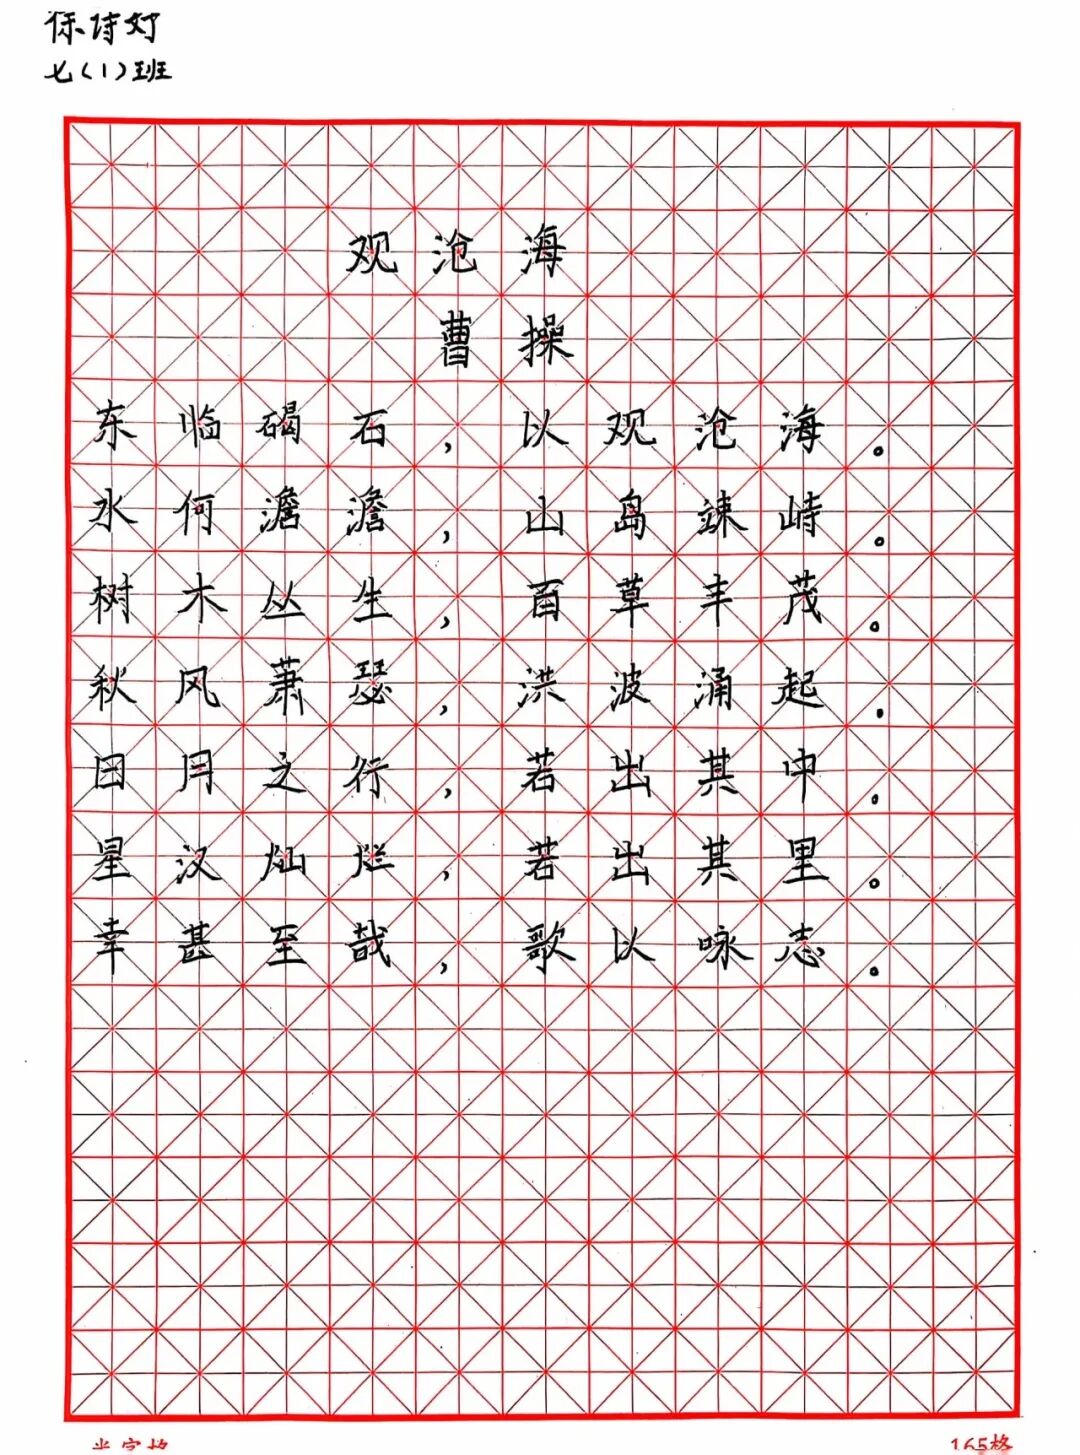 七(1)班
观沧海
曹操
东临碣石，以观沧海。
水何澹澹，山岛竦峙。
树木丛生，百草丰茂。
秋风萧瑟，洪波涌起。
日月之行，若出其中。
星汉灿烂，若出其里。
幸甚至哉，歌以咏志。
165格